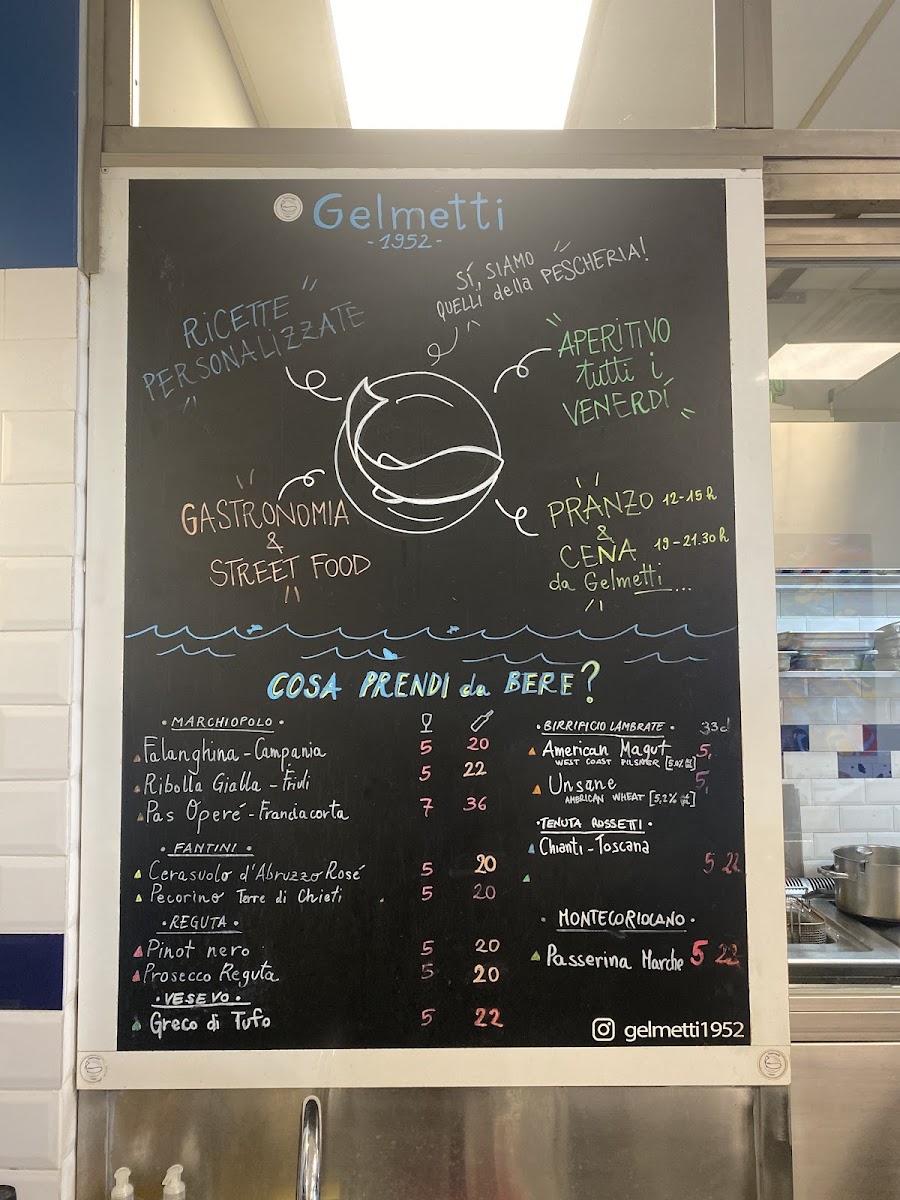 Gelmetti
- 1952 -
SÍ, SIAMO
QUELLI della PESCHERIA!
RICETTE
PERSONALIZZATE
APERITIVO
tutti i
VENERDÍ
GASTRONOMIA
&
STREET FOOD
PRANZO 12-15h
&
CENA 19-21.30h
da Gelmetti...
COSA PRENDI da BERE?
• MARCHIOPOLO •
Falanghina - Campania 5 20
Ribolla Gialla - Friuli 5 22
Pas Operé - Franciacorta 7 36
• FANTINI •
Cerasuolo d'Abruzzo Rosé 5 20
Pecorino Terre di Chieti 5 20
• REGUTA •
Pinot nero 5 20
Prosecco Reguta 5 20
• VESEVO •
Greco di Tufo 5 22
• BIRRIFICIO LAMBRATE • 33cl
American Magut 5,
WEST COAST PILSNER
Unsane 5,
AMERICAN WHEAT [5,2%
• TENUTA ROSSETTI •
Chianti - Toscana
5 22
• MONTECORIOLANO •
Passerina Marche 5 22
gelmetti1952